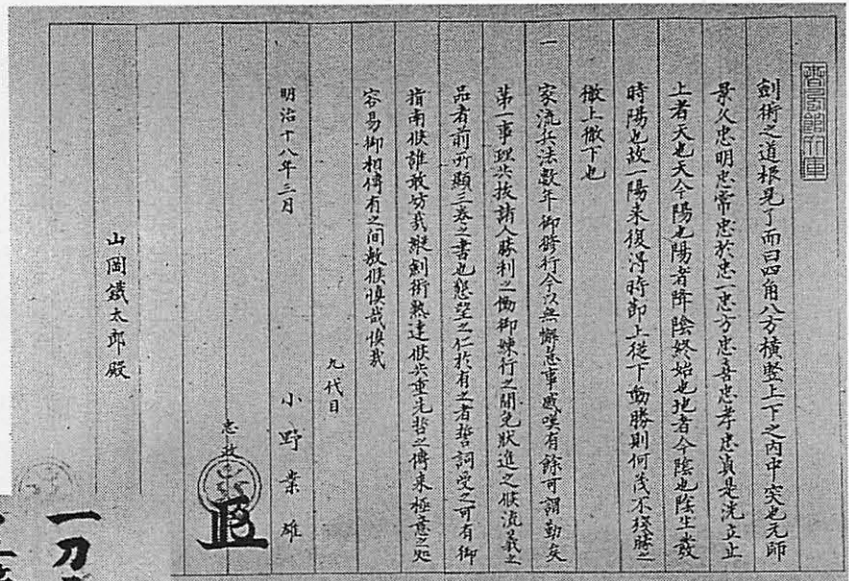 劍術之道根見了而曰四角八方横竪上下之内中突也元師
景久忠明忠常忠於忠一忠方忠喜忠孝忠貞是洗立止
上者天也天今陽也陽者降陰終始也地者今陰也陰生發
時陽也故一陽来復得時節上從下動勝則何茂不殘勝之
徹上徹下也
一
家流兵法數年御修行今以無懈怠事感嘆有餘可謂勤矣
第一事理共抜諸人勝利之働御煉行之間免状進之候流義之
品者前所顯三巻之書也懇望之仁於有之者誓詞受之可有御
指南候誰敢妨哉縱劍術熟達候共重先哲之傳来極意之処
容易御相傳有之間敷候慎哉慎哉
九代目
小野業雄
忠政
明治十八年三月
山岡鐵太郎殿
一刀